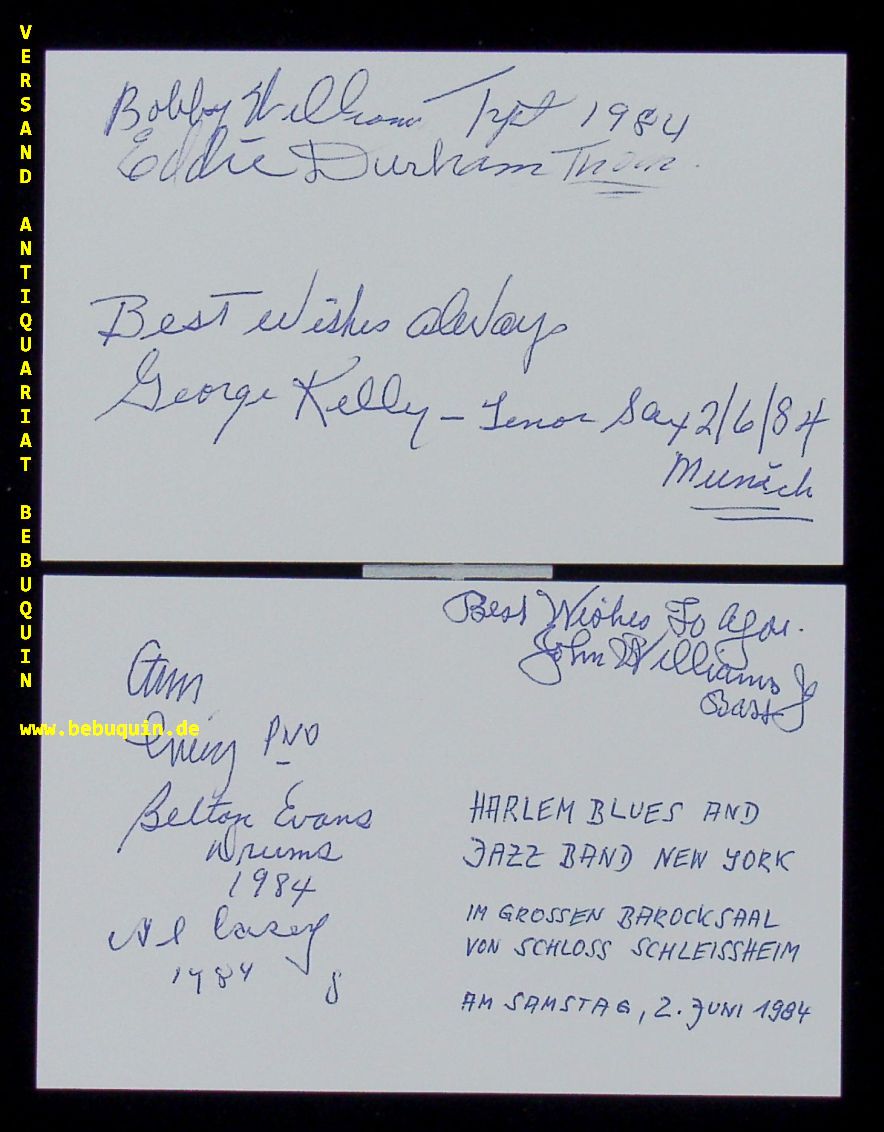 VERSAND ANTIQUARIAT BEBUQUIN
www.bebuquin.de
Bobby Williams Tpt 1984
Eddie Durham Trom.
Best Wishes always
George Kelly – Tenor Sax 2/6/84
Munich
Best Wishes To
John Williams Jr
Bass
PNO
Belton Evans
Drums
1984
Al Casey
1984
HARLEM BLUES AND
JAZZ BAND NEW YORK
IM GROSSEN BAROCKSAAL
VON SCHLOSS SCHLEISSHEIM
AM SAMSTAG, 2. JUNI 1984